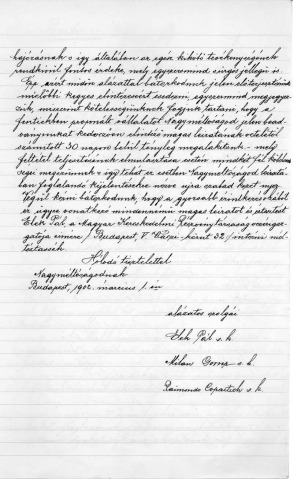 hajózásnak s így általában az egész kikötői tevékenységének
rendkívül fontos érdeke, mely egyszersmind sürgős jellegű is
Ép azért midőn alázattal bátorkodunk jelen előterjesztésünk
mielőbbi kegyes elintézéseért esedezni, egyszersmind megjegyez-
zük, miszerint kötelességünknek fogjuk tartani, hogy a
fentiekben proponált vállalatot Nagyméltóságod jelen bead-
ványunkat kedvezően elintéző magas leiratának vételétől
számított 30 napon belül tényleg megalakítsuk - mely
feltétel teljesítésének elmulasztása esetén mindkét fél
megszünnek s így tehát ez esetben Nagyméltóságod leiratá-
ban foglalandó kijelentésekre nézve újra szabad kezet nyer.
Végül kérni bátorkodunk, hogy a gyorsabb érintkezés okából
ez ügyre vonatkozó mindennemű magas leiratot és értesítést
Elek Pál, a Magyar Kereskedelmi Részvénytársaság vezérigaz-
gatója címére / Budapest, V. Váczi körut 32 / intézni mél-
tóztassék.
Hódoló tisztelettel
Nagyméltóságodnak
Budapest, 1902. március 1.-én
alázatos szolgái
Elek Pál s. k.
Milan s. k.
Raimondo Copaitich s. k.